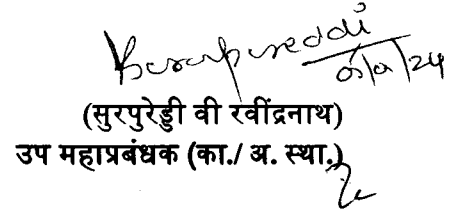 (सुरपुरेड्डी वी रवींद्रनाथ)
उप महाप्रबंधक (का./ अ. स्था.)